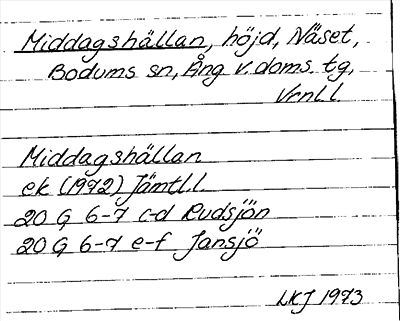 Middagshällan, höjd, Näset,
Bodums sn, Ång v. doms. tg,
Vrnl.l.
Middagshällan
ek (1972) Jämtl.l.
20 G 6-7 c-d Rudsjön
20 G 6-7 e-f Jansjö
LKJ 1973